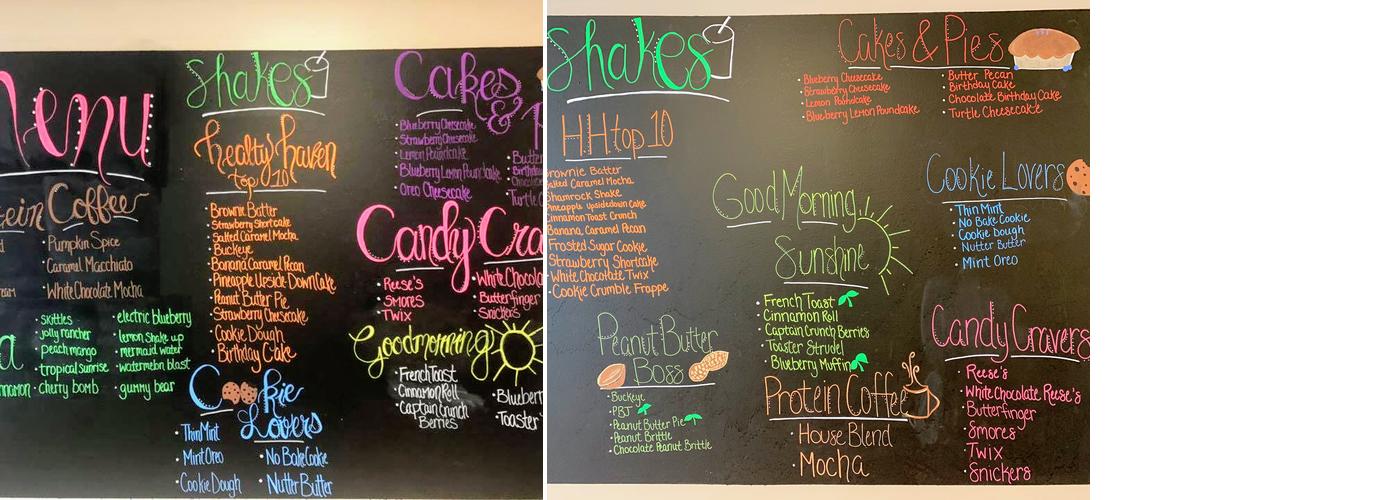 Menu
Coffee
Pumpkin Spice
Caramel Macchiato
White Chocolate Mocha
skittles
jolly rancher
peach mango
tropical sunrise
cherry bomb
electric blueberry
lemon shake up
mermaid water
watermelon blast
gummy bear
Shakes
healthy haven
top 10
Brownie Batter
Strawberry Shortcake
Salted Caramel Mocha
Buckeye
Banana Caramel Pecan
Pineapple Upside-Down Cake
Peanut Butter Pie
Strawberry Cheesecake
Cookie Dough
Birthday Cake
Cookie
Lovers
Thin Mint
Mint Oreo
Cookie Dough
No Bake Cookie
Nutter Butter
Cakes
&
Blueberry Cheesecake
Strawberry Cheesecake
Lemon Poundcake
Blueberry Lemon Poundcake
Oreo Cheesecake
Candy Cra
Reese's
Smores
Twix
White Chocola
Butterfinger
Snickers
Goodmorning
French Toast
Cinnamon Roll
Captain Crunch
Berries
Blueberr
Toaster
Shakes
HH top 10
Brownie Batter
Salted Caramel Mocha
Shamrock Shake
Pineapple Upsidedown Cake
Cinnamon Toast Crunch
Banana Caramel Pecan
Frosted Sugar Cookie
Strawberry Shortcake
White Chocolate Twix
Cookie Crumble Frappe
Peanut Butter
Boss
Buckeye
PBJ
Peanut Butter Pie
Peanut Brittle
Chocolate Peanut Brittle
Good Morning
Sunshine
French Toast
Cinnamon Roll
Captain Crunch Berries
Toaster Strudel
Blueberry Muffin
Protein Coffee
House Blend
Mocha
Cakes & Pies
Blueberry Cheesecake
Strawberry Cheesecake
Lemon Poundcake
Blueberry Lemon Poundcake
Butter Pecan
Birthday Cake
Chocolate Birthday Cake
Turtle Cheesecake
Cookie Lovers
Thin Mint
No Bake Cookie
Cookie Dough
Nutter Butter
Mint Oreo
Candy Cravers
Reese's
White Chocolate Reese's
Butterfinger
Smores
Twix
Snickers